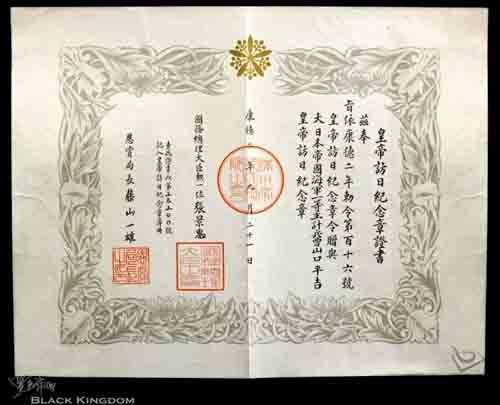 皇帝訪日紀念章證書
茲奉
旨依康德二年勅令第百十六號
皇帝訪日紀念章令贈與
大日本帝國海軍一等主計兵曹山口平吉
皇帝訪日紀念章
康德二年九月二十一日
國務總理大臣勲一位張景惠
恩賞局長藤山一雄
BLACK KINGDOM